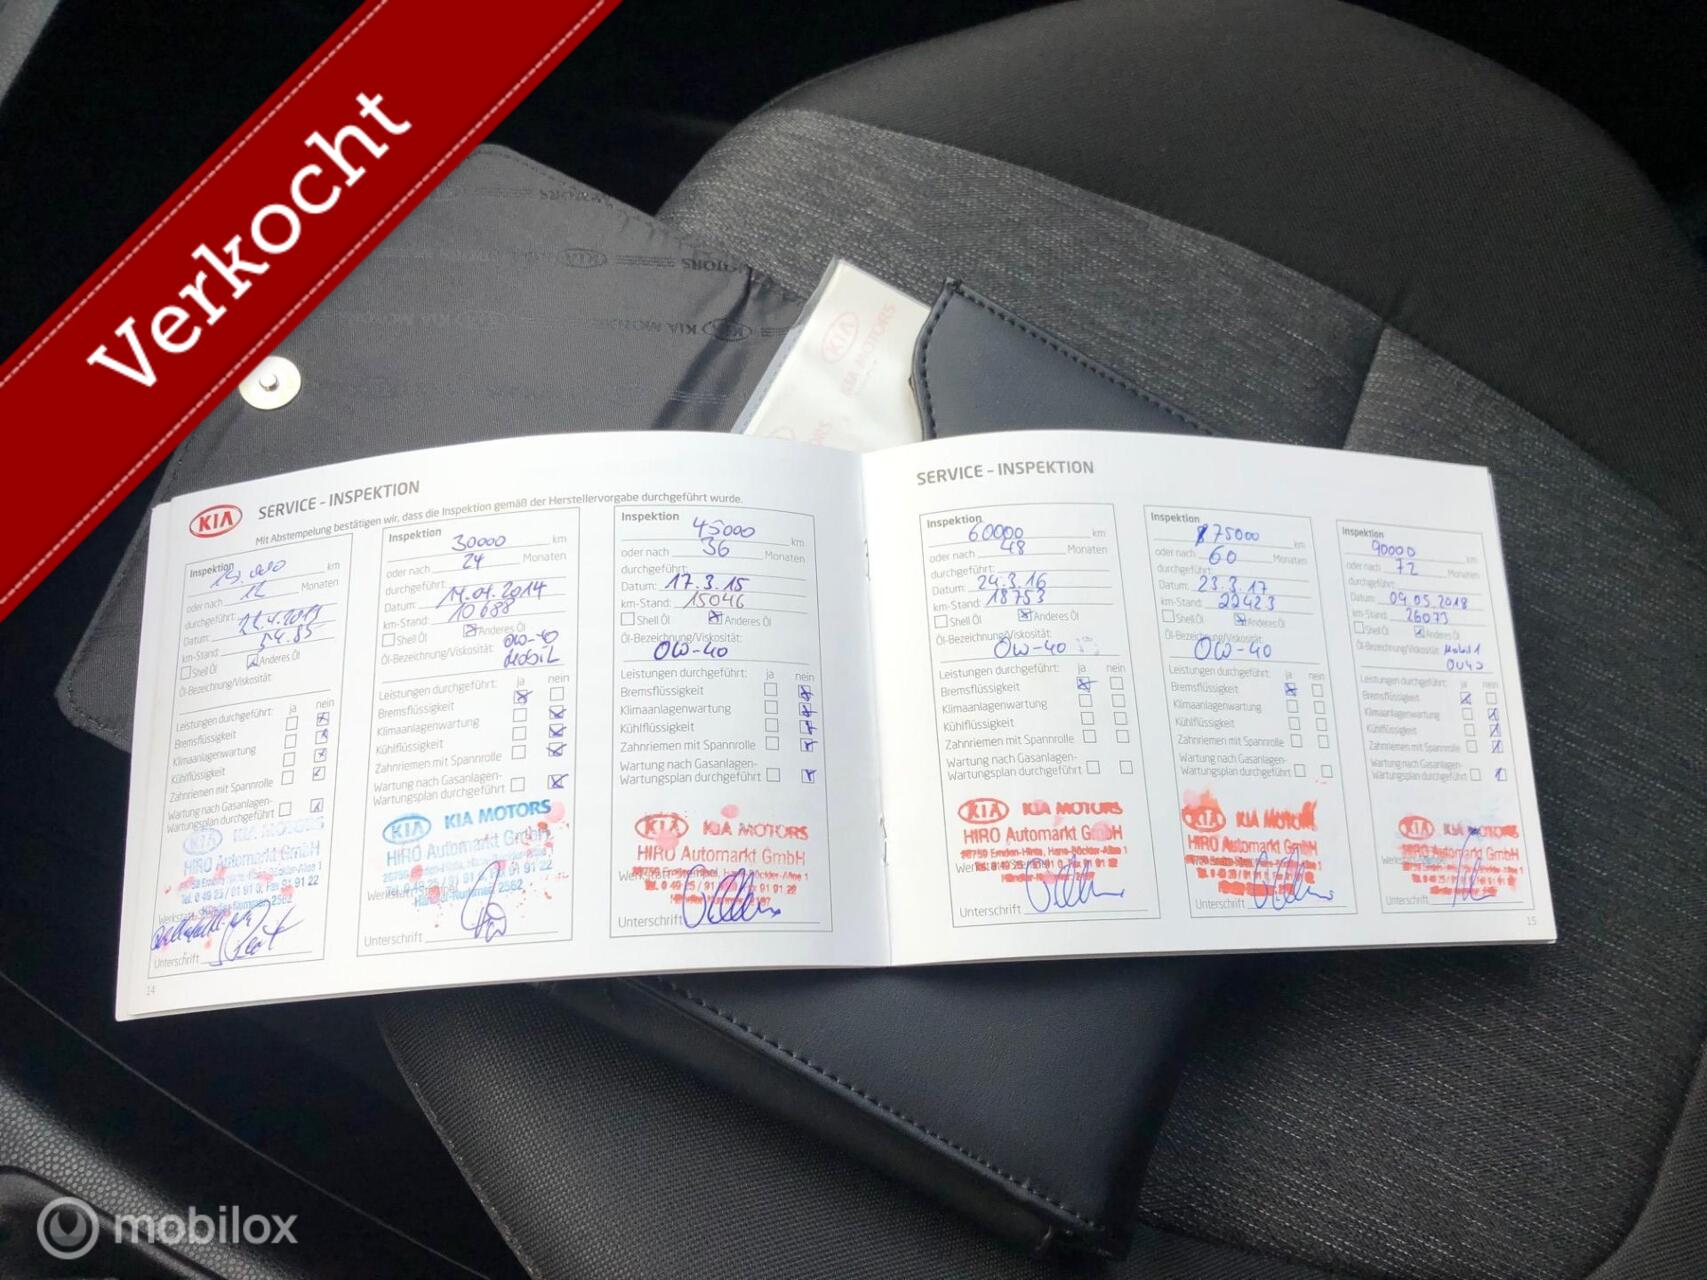 Verkocht
KIA MOTORS
KIA
SERVICE - INSPEKTION
Mit Abstempelung bestätigen wir, dass die Inspektion gemäß der Herstellervorgabe durchgeführt wurde.
Inspektion
km
oder nach 12 Monaten
durchgeführt:
Datum:
km-Stand:
Shell Öl Anderes Öl
Öl-Bezeichnung/Viskosität:
Leistungen durchgeführt: ja nein
Bremsflüssigkeit
Klimaanlagenwartung
Kühlflüssigkeit
Zahnriemen mit Spannrolle
Wartung nach Gasanlagen-
Wartungsplan durchgeführt
KIA MOTORS
HIRO Automarkt GmbH
Unterschrift
14
Inspektion
30000 km
oder nach 24 Monaten
durchgeführt:
Datum: 14.04.2014
km-Stand: 10688
Shell Öl Anderes Öl
Öl-Bezeichnung/Viskosität: 0W-40
Mobil
Leistungen durchgeführt: ja nein
Bremsflüssigkeit
Klimaanlagenwartung
Kühlflüssigkeit
Zahnriemen mit Spannrolle
Wartung nach Gasanlagen-
Wartungsplan durchgeführt
KIA KIA MOTORS
HIRO Automarkt GmbH
Unterschrift
Inspektion
45000 km
oder nach 36 Monaten
durchgeführt:
Datum: 17.3.15
km-Stand: 15046
Shell Öl Anderes Öl
Öl-Bezeichnung/Viskosität:
0W-40
Leistungen durchgeführt: ja nein
Bremsflüssigkeit
Klimaanlagenwartung
Kühlflüssigkeit
Zahnriemen mit Spannrolle
Wartung nach Gasanlagen-
Wartungsplan durchgeführt
KIA KIA MOTORS
HIRO Automarkt GmbH
Unterschrift
SERVICE - INSPEKTION
Inspektion
60000 km
oder nach 48 Monaten
durchgeführt:
Datum: 24.3.16
km-Stand: 18753
Shell Öl Anderes Öl
Öl-Bezeichnung/Viskosität:
0W-40
Leistungen durchgeführt: ja nein
Bremsflüssigkeit
Klimaanlagenwartung
Kühlflüssigkeit
Zahnriemen mit Spannrolle
Wartung nach Gasanlagen-
Wartungsplan durchgeführt
KIA KIA MOTORS
HIRO Automarkt GmbH
Unterschrift
Inspektion
75000 km
oder nach 60 Monaten
durchgeführt:
Datum: 23.3.17
km-Stand: 22423
Shell Öl Anderes Öl
Öl-Bezeichnung/Viskosität:
0W-40
Leistungen durchgeführt: ja nein
Bremsflüssigkeit
Klimaanlagenwartung
Kühlflüssigkeit
Zahnriemen mit Spannrolle
Wartung nach Gasanlagen-
Wartungsplan durchgeführt
KIA KIA MOTORS
HIRO Automarkt GmbH
Unterschrift
Inspektion
90000 km
oder nach 72 Monaten
durchgeführt:
Datum: 09.05.2018
km-Stand: 26073
Shell Öl Anderes Öl
Öl-Bezeichnung/Viskosität: Mobil 1
0W40
Leistungen durchgeführt: ja nein
Bremsflüssigkeit
Klimaanlagenwartung
Kühlflüssigkeit
Zahnriemen mit Spannrolle
Wartung nach Gasanlagen-
Wartungsplan durchgeführt
KIA KIA MOTORS
HIRO Automarkt GmbH
Unterschrift
15
mobilox